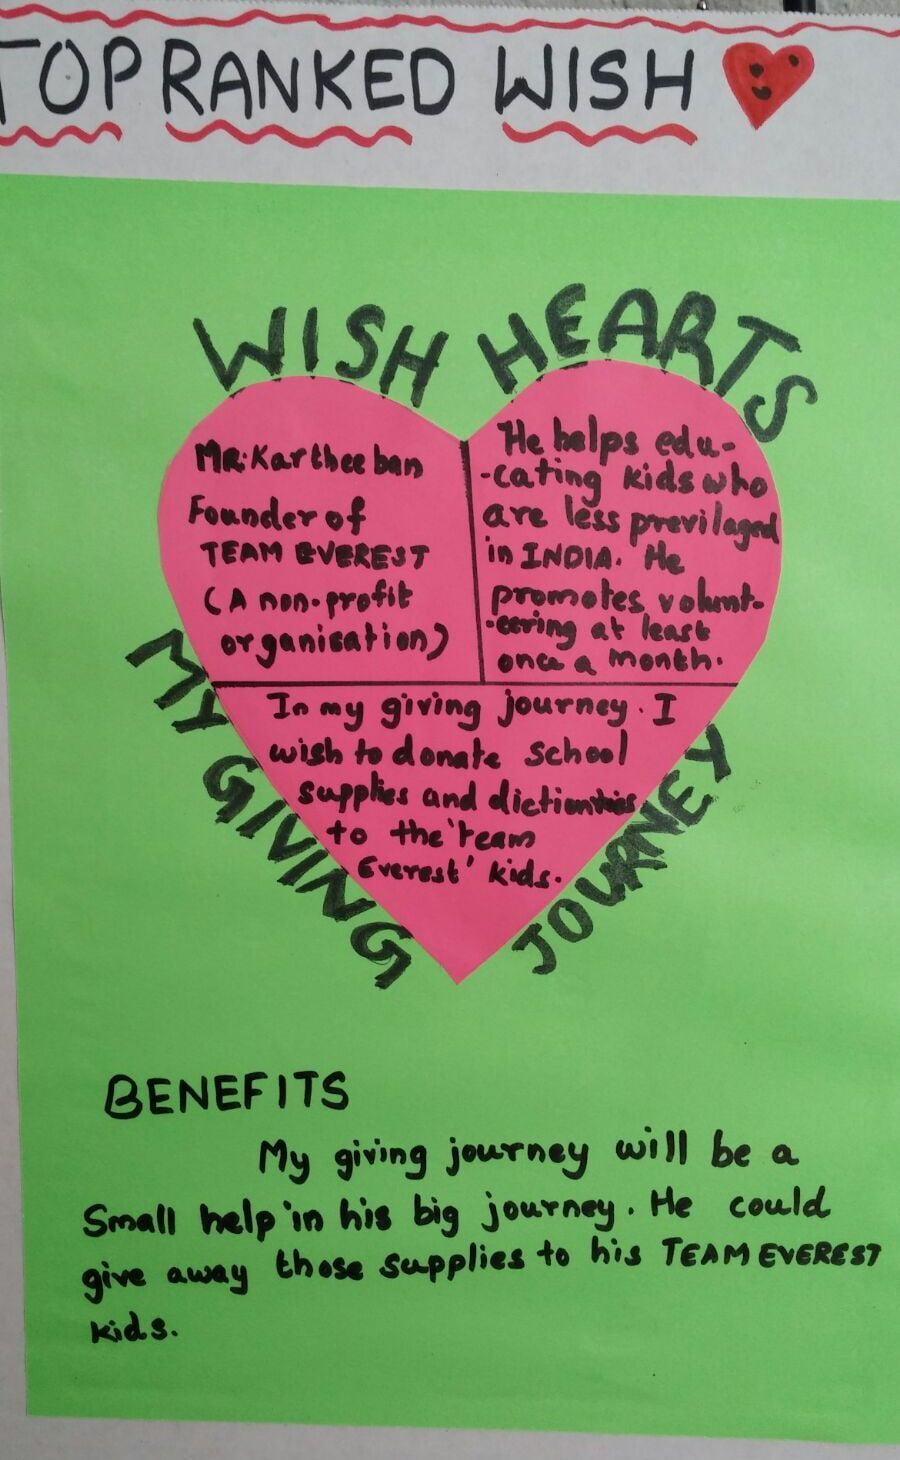 TOP RANKED WISH
WISH HEARTS
Mr. Kartheeban
Founder of
TEAM EVEREST
(A non-profit
organisation)
He helps edu-
-cating kids who
are less previlaged
in INDIA. He
promotes volunt-
-eering at least
once a month.
In my giving journey. I
wish to donate school
supplies and dictionries
to the 'Team
Everest' kids.
MY GIVING
JOURNEY
BENEFITS
My giving journey will be a
Small help in his big journey. He could
give away those supplies to his TEAM EVEREST
kids.